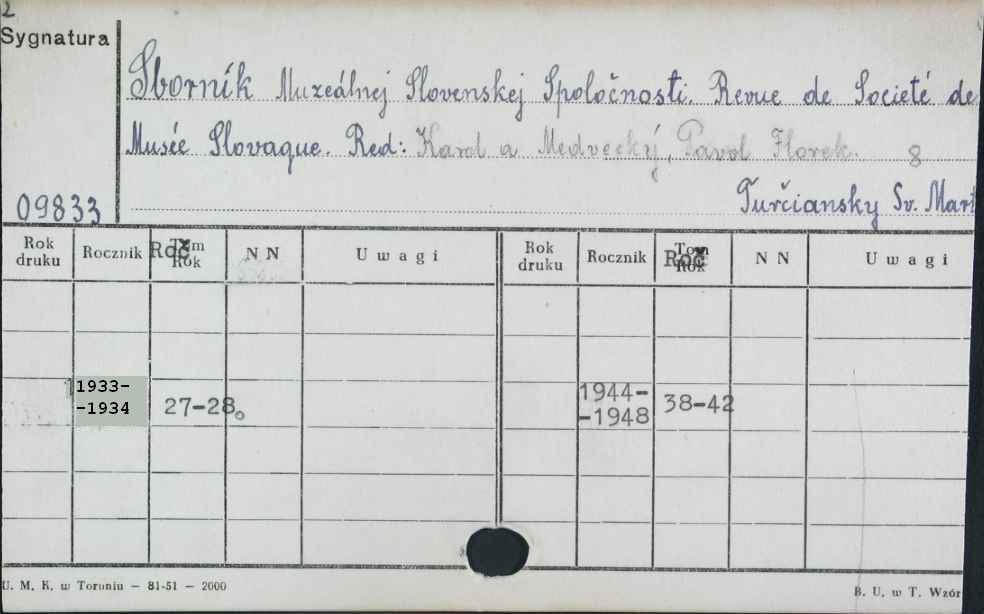 2
Sygnatura
Sborník Muzeálnej Slovenskej Spoločnosti. Revue de Societé de
Musée Slovaque. Red: Karol a Medvecký, Pavol Florek. 8
09833 Turčiansky Sv. Mart
Rok druku Rocznik Roč Tom Rok N N Uwagi Rok druku Rocznik Roč Tom Rok N N Uwagi
1933- 1944-
-1934 27-28 -1948 38-42
U. M. K. w Toruniu — 81-51 — 2000 B. U. w T. Wzór